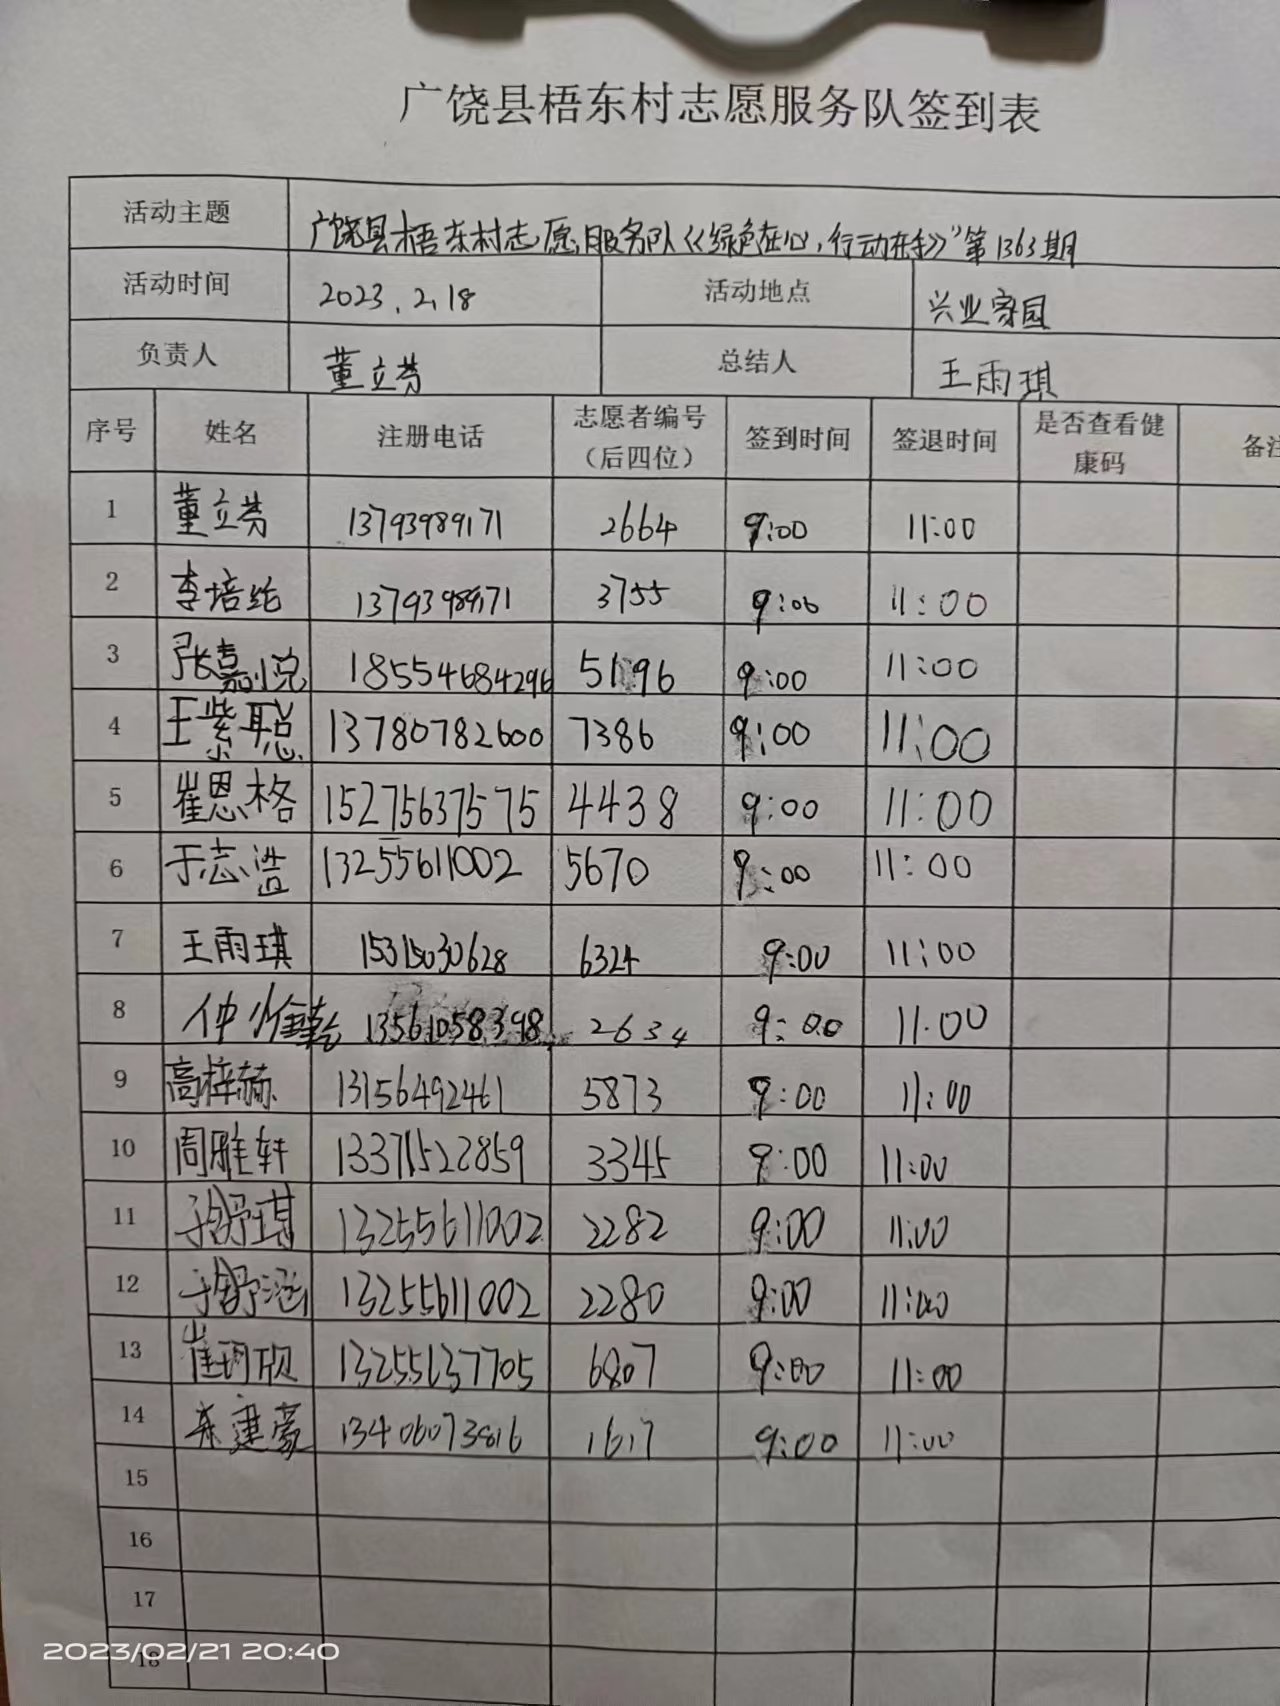 广饶县梧东村志愿服务队签到表
活动主题 广饶县梧东村志愿服务队《《绿色在心,行动在手》"第1363期
活动时间 2023.2.18 活动地点 兴业家园
负责人 董立芬 总结人 王雨琪
序号 姓名 注册电话 志愿者编号（后四位） 签到时间 签退时间 是否查看健康码 备注
1 董立芬 13793989171 2664 9:00 11:00
2 李培纶 13793989171 3755 9:00 11:00
3 张嘉悦 18554684296 5196 9:00 11:00
4 王紫聪 13780782600 7386 9:00 11:00
5 崔恩格 15275637575 4438 9:00 11:00
6 于志浩 13255611002 5670 9:00 11:00
7 王雨琪 15315030628 6324 9:00 11:00
8 仲 13561058398 2634 9:00 11:00
9 高梓赫 13156492461 5873 9:00 11:00
10 周雅轩 13371522859 3345 9:00 11:00
11 于舒琪 13255611002 2282 9:00 11:00
12 于舒涵 13255611002 2280 9:00 11:00
13 崔珂欣 13255637705 6807 9:00 11:00
14 建豪 13406073816 1617 9:00 11:00
15
16
17
18
2023/02/21 20:40